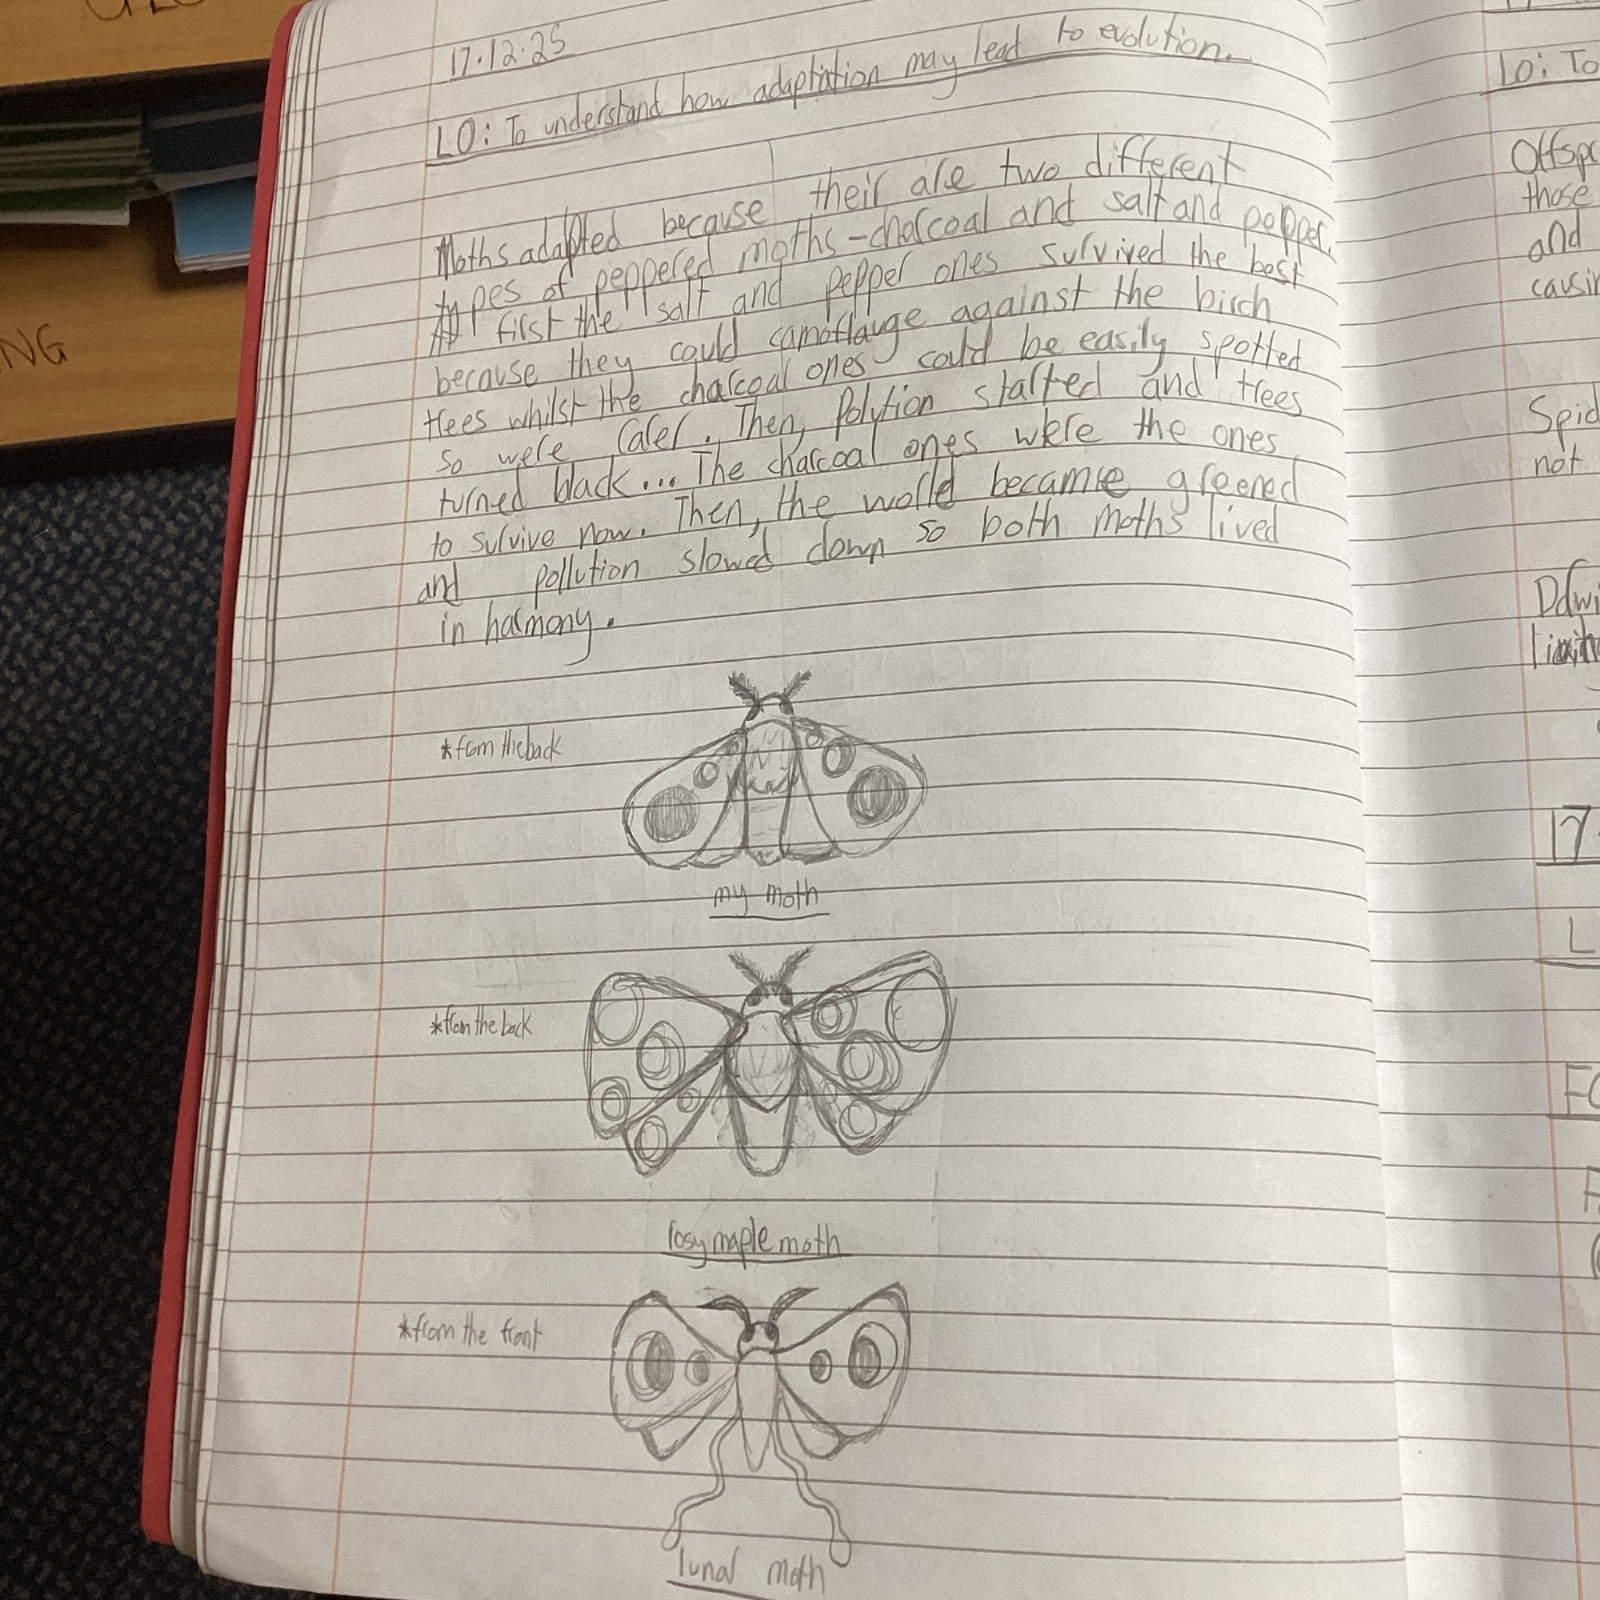 17.12.25
LO: To understand how adaptation may lead to evolution.
Moths adapted because their are two different
types of peppered moths - charcoal and salt and pepper.
first the salt and pepper ones survived the best
because they could camoflauge against the birch
trees whilst the charcoal ones could be easily spotted
so were rarer. Then, Polution started and trees
turned black... The charcoal ones were the ones
to survive now. Then, the world became greened
and pollution slowed down so both moths lived
in harmony.
*from the back
my moth
*from the back
rosy maple moth
*from the front
lunar moth
NG
Lo: To
Offspr
those
and
causin
Spid
not
17
L